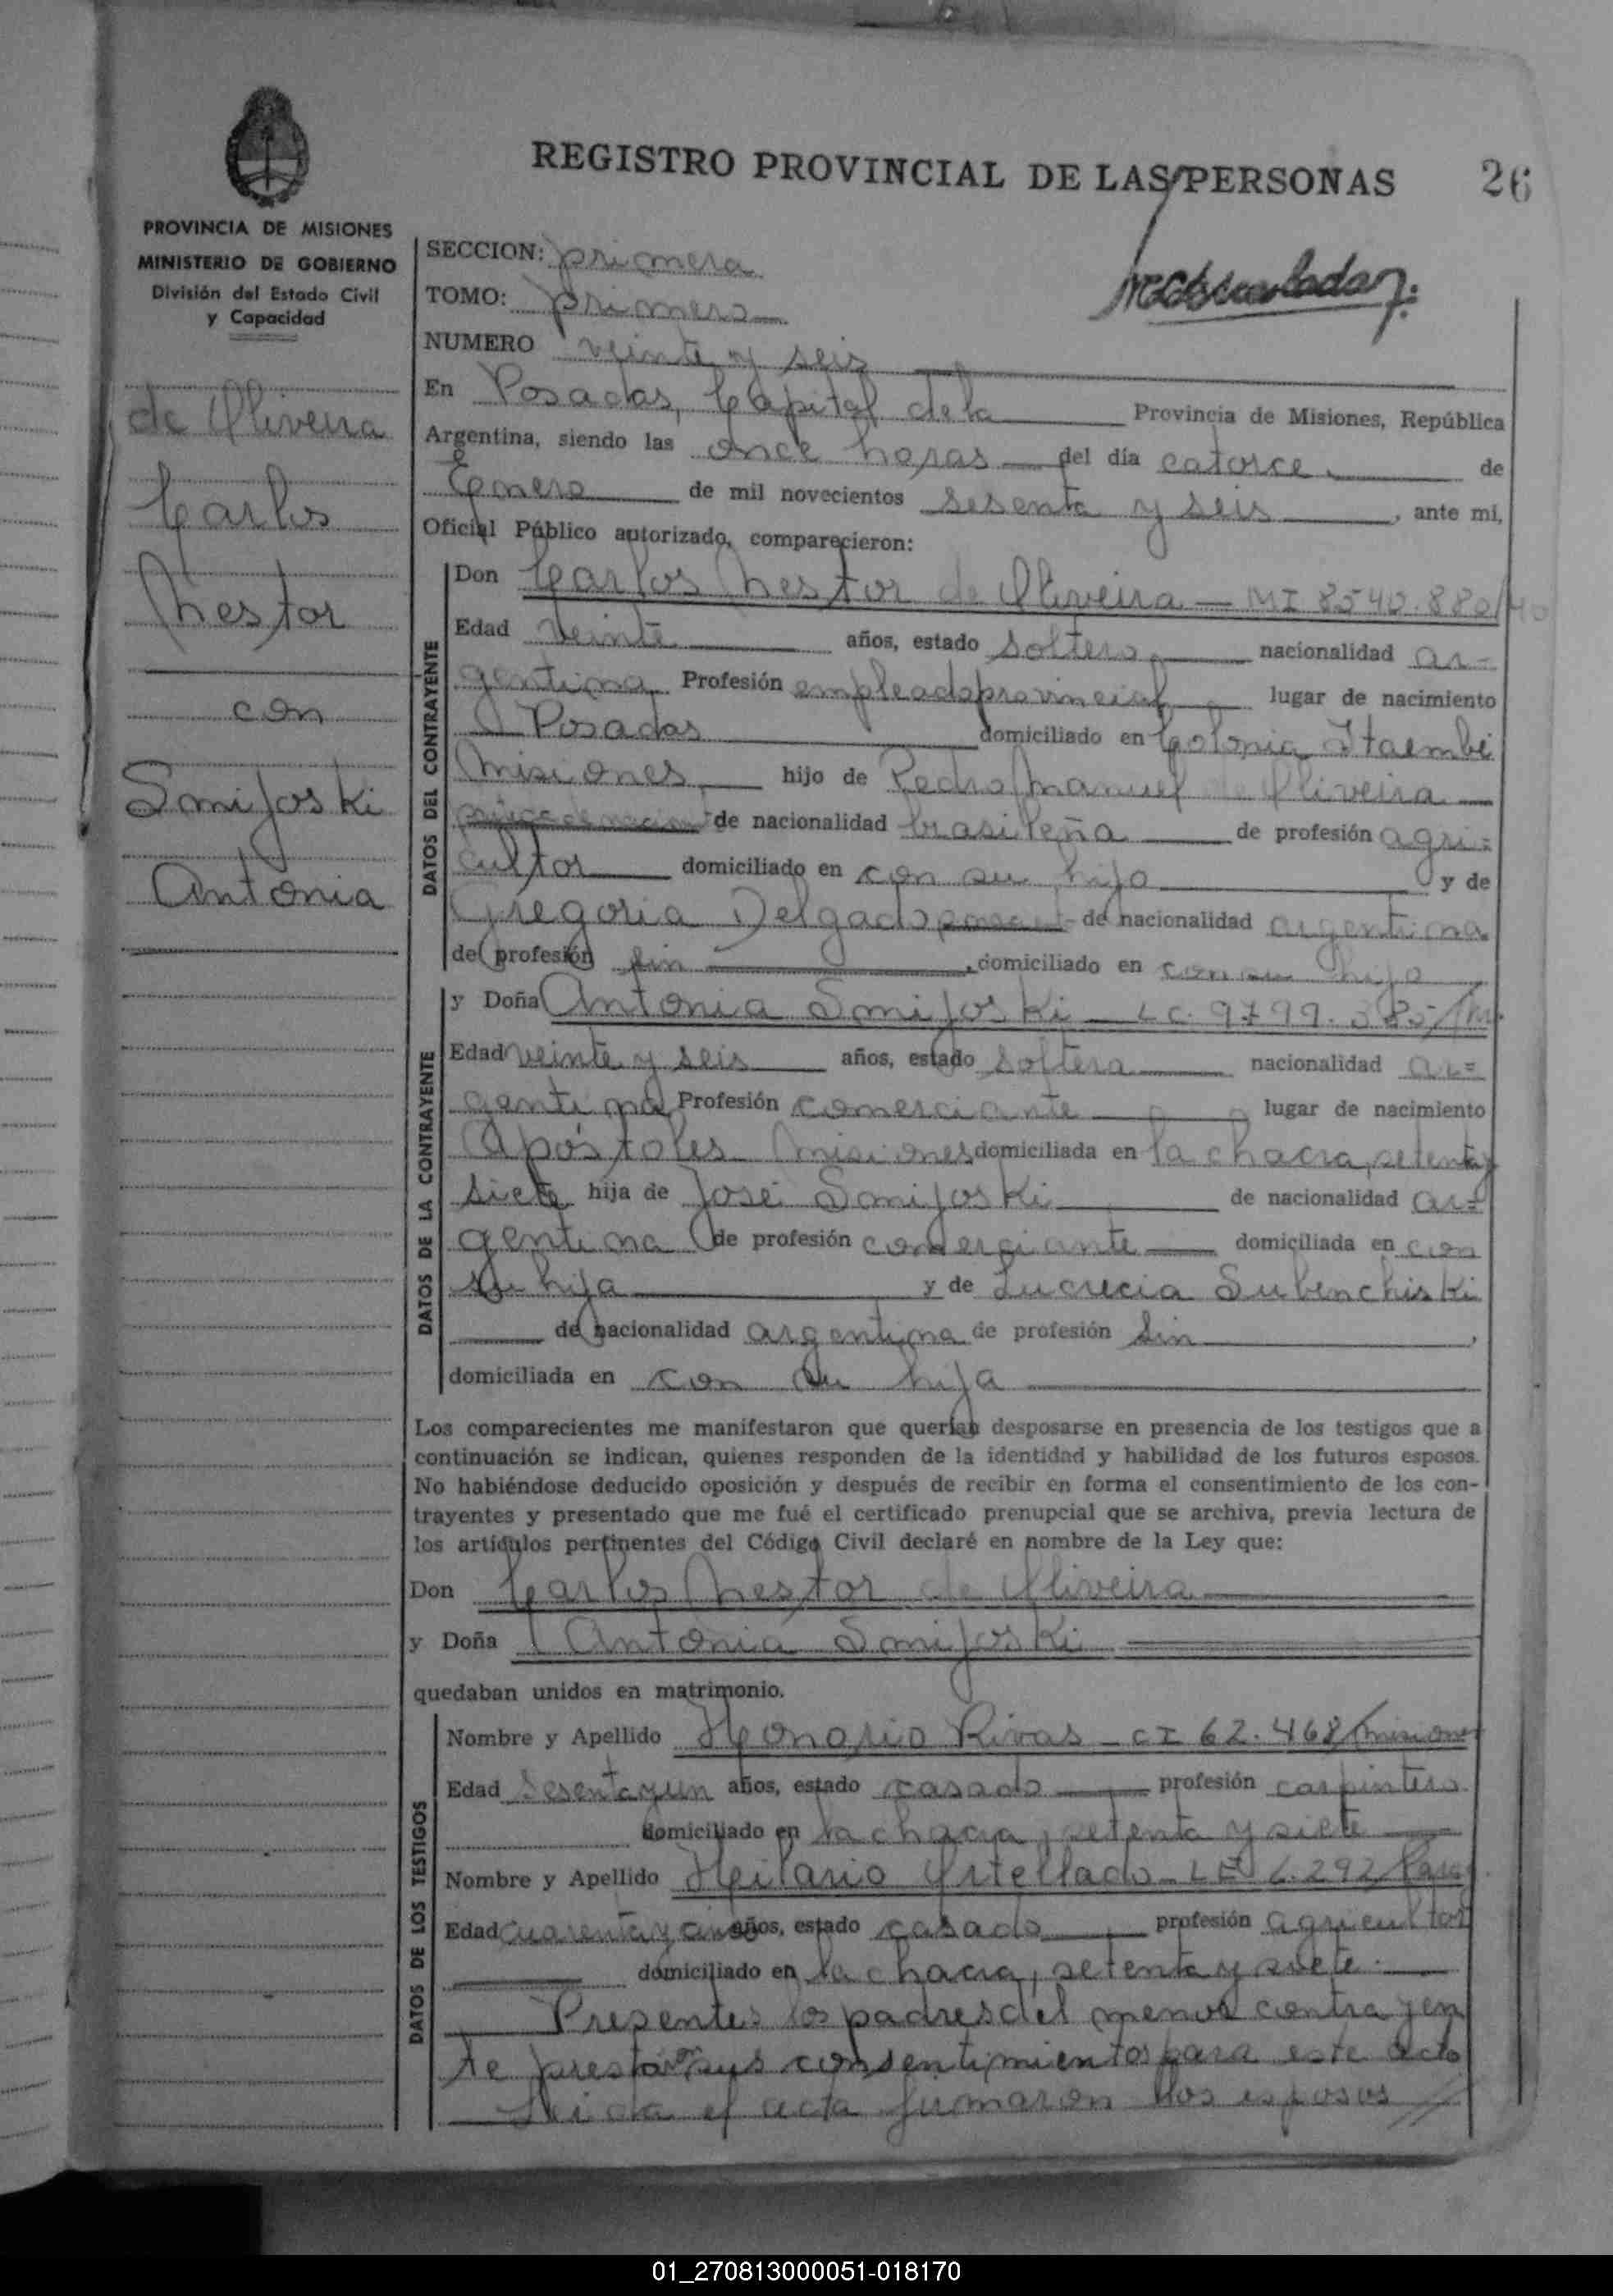 REGISTRO PROVINCIAL DE LAS PERSONAS 26
PROVINCIA DE MISIONES
MINISTERIO DE GOBIERNO
División del Estado Civil
y Capacidad
de Oliveira
Carlos
Nestor
con
Smijoski
Antonia
SECCION: primera
TOMO: primero
NUMERO veinte y seis
En Posadas, Capital de la Provincia de Misiones, República
Argentina, siendo las once horas del día catorce de
Enero de mil novecientos sesenta y seis, ante mi,
Oficial Público autorizado, comparecieron:
DATOS DEL CONTRAYENTE
Don Carlos Nestor de Oliveira - MI 8540.880/
Edad veinte años, estado soltero nacionalidad ar-
gentina Profesión empleado provincial lugar de nacimiento
Posadas domiciliado en Colonia Itaembé
Misiones hijo de Pedro Manuel de Oliveira
de nacionalidad brasileña de profesión agri=
cultor domiciliado en con su hijo y de
Gregoria Delgado de nacionalidad argentina
de profesión sin, domiciliado en con su hijo
DATOS DE LA CONTRAYENTE
y Doña Antonia Smijoski - LC. 9799.385/M.
Edad veinte y seis años, estado soltera nacionalidad ar=
gentina Profesión comerciante lugar de nacimiento
Apóstoles Misiones domiciliada en la chacra, setenta y
siete hija de José Smijoski de nacionalidad ar=
gentina de profesión comerciante domiciliada en con
su hija y de Lucrecia Subenchiski
de nacionalidad argentina de profesión sin,
domiciliada en con su hija
Los comparecientes me manifestaron que querían desposarse en presencia de los testigos que a
continuación se indican, quienes responden de la identidad y habilidad de los futuros esposos.
No habiéndose deducido oposición y después de recibir en forma el consentimiento de los con-
trayentes y presentado que me fué el certificado prenupcial que se archiva, previa lectura de
los artículos pertinentes del Código Civil declaré en nombre de la Ley que:
Don Carlos Nestor de Oliveira
y Doña Antonia Smijoski
quedaban unidos en matrimonio.
DATOS DE LOS TESTIGOS
Nombre y Apellido Honorio Rivas - CI 62.468/Misiones
Edad sesenta y un años, estado casado profesión carpintero
domiciliado en la chacra, setenta y siete
Nombre y Apellido Heilario Ortellado - LE 6.292/
Edad cuarenta y años, estado casado profesión agricultor
domiciliado en la chacra, setenta y siete.
Presentes los padres del menor contrayen
te prestaron sus consentimientos para este acto
Leida el acta firmaron los esposos //
01_270813000051-018170